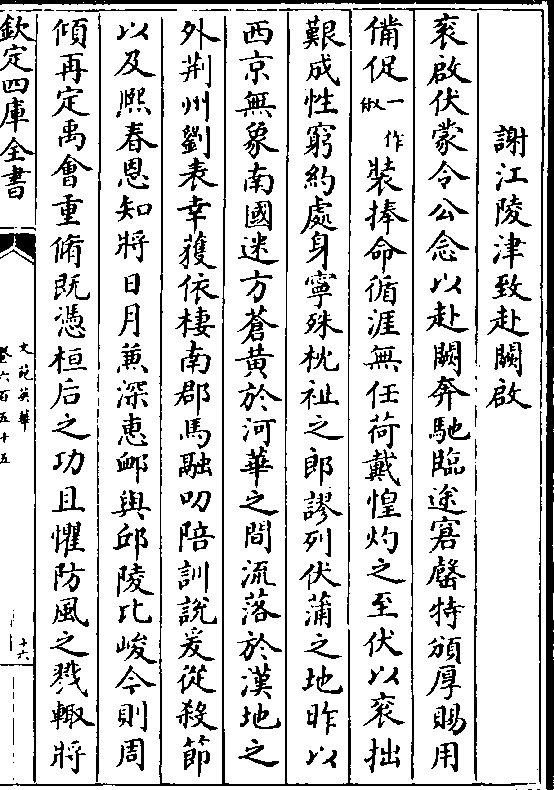 謝江陵津致赴闕啟
衮啟伏蒙令公念以赴闕奔馳臨途窘罄特頒厚賜用
備促一作俶裝捧命循涯無任荷戴惶灼之至伏以衮拙
艱成性窮約處身寧殊枕祉之郎謬列伏蒲之地昨以
西京無象南國迷方蒼黄於河華之間流落於漢地之
外荆州劉表幸獲依棲南郡馬融叨陪訓説爰從殺節
以及熈春恩知將日月兼深惠䘏與邱陵比峻今則周
傾再定禹會重脩既憑桓后之功且懼防風之戮輙將
欽定四庫全書
文苑英華
卷六百五十五
十六